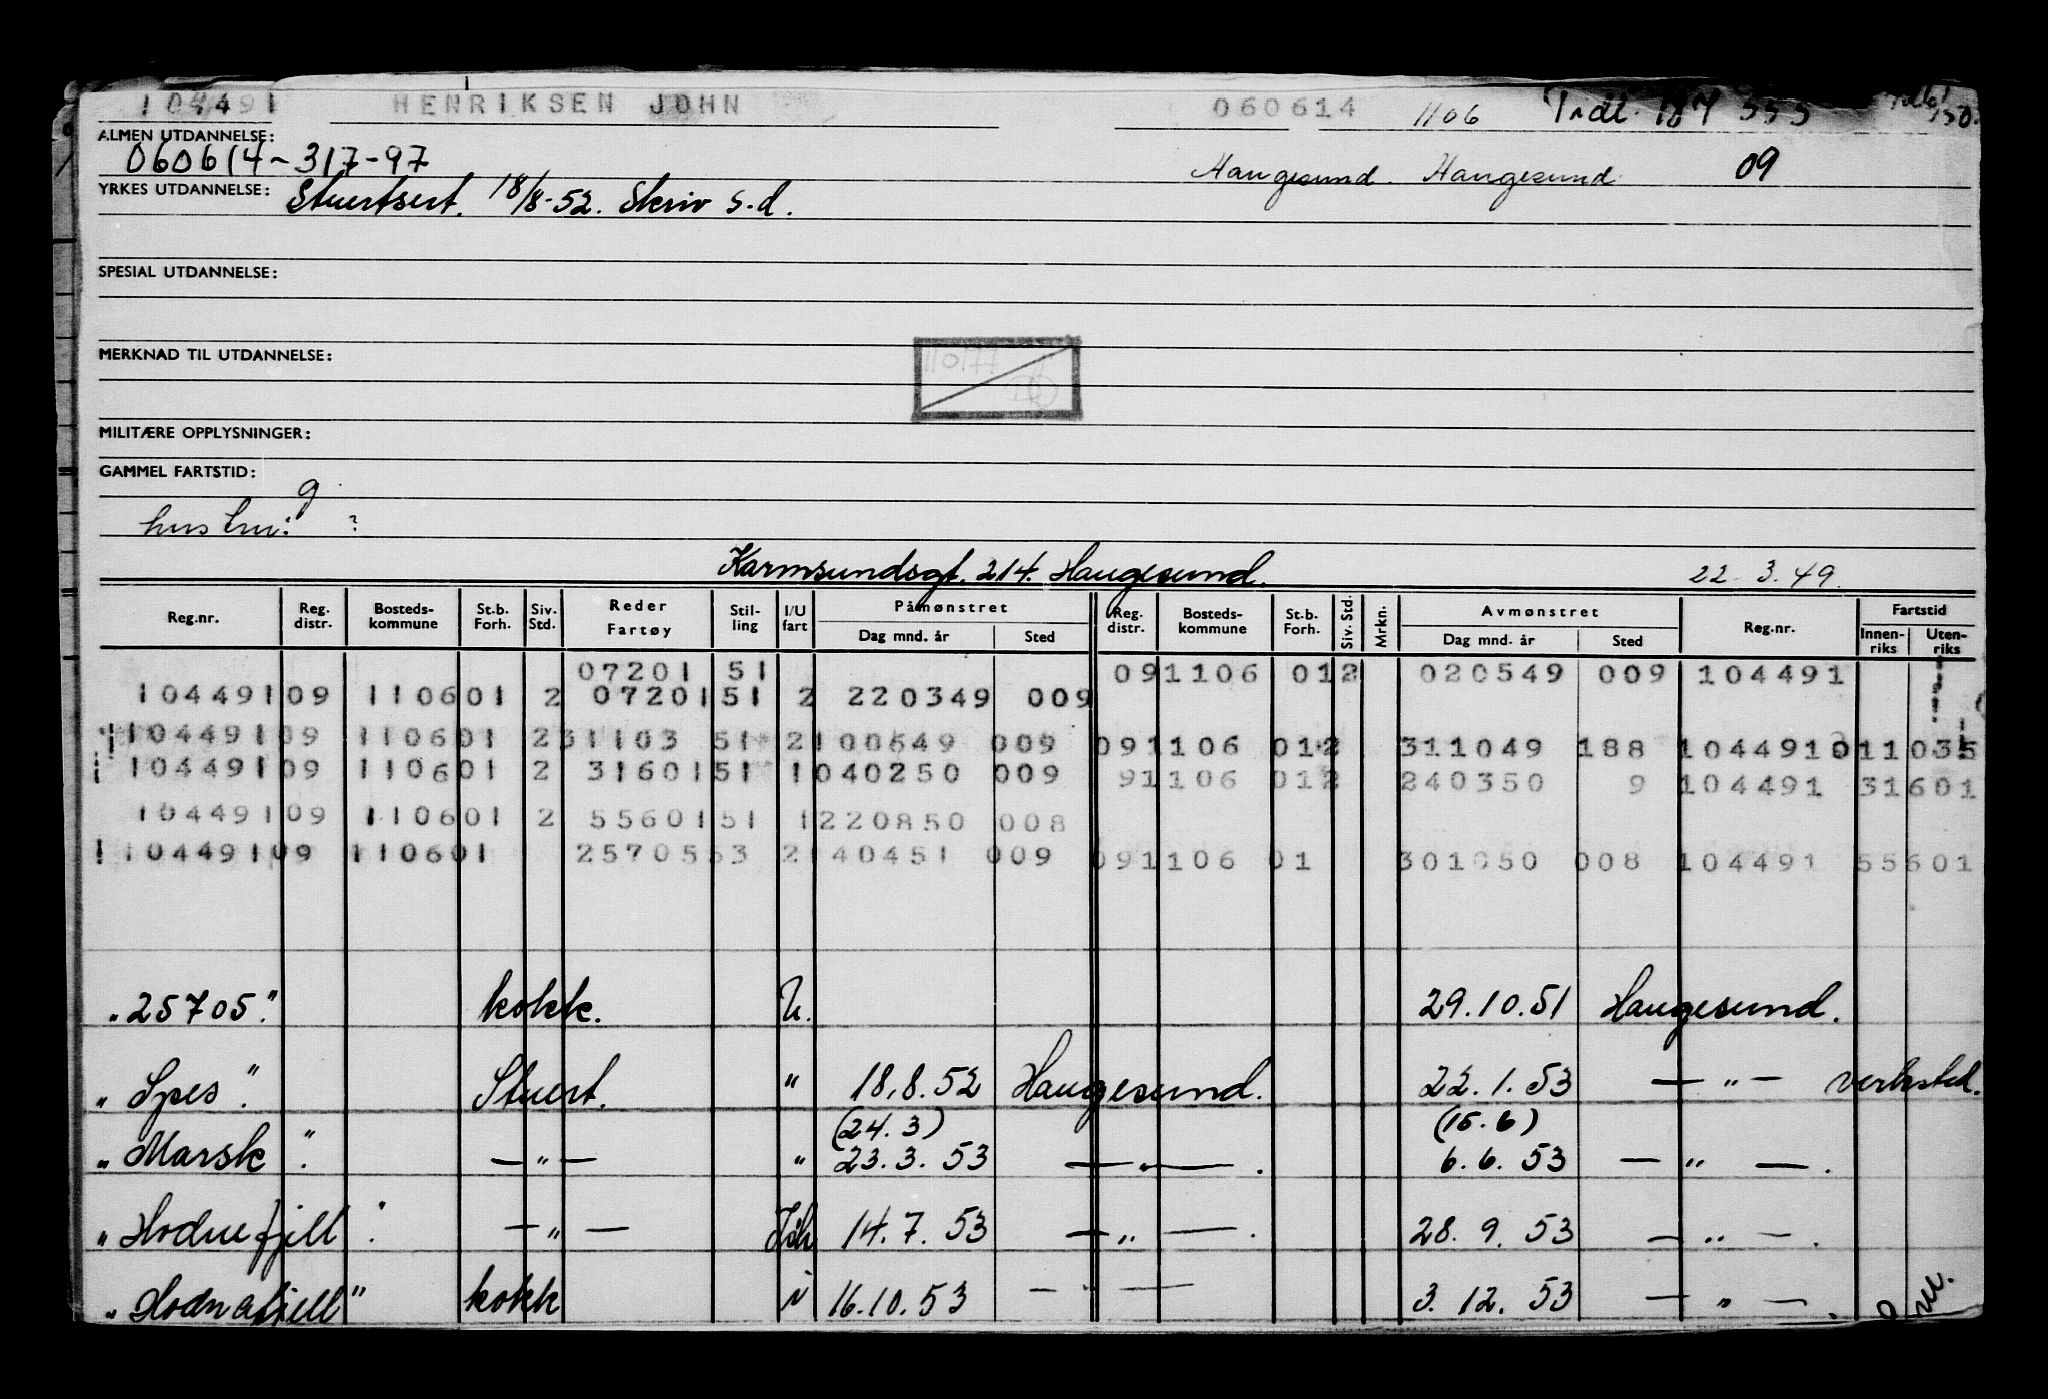 104491 HENRIKSEN JOHN 060614 1106
ALMEN UTDANNELSE:
060614-317-97 Haugesund. Haugesund 09
YRKES UTDANNELSE: Stuertsert. 18/8-52. Skriv s.d.
SPESIAL UTDANNELSE:
MERKNAD TIL UTDANNELSE:
110177
MILITÆRE OPPLYSNINGER:
GAMMEL FARTSTID:
g
hustru: ?
Karmsundsgt. 214. Haugesund. 22.3.49.
Reg.nr. Reg. distr. Bosteds- kommune St.b. Forh. Siv. Std. Reder Fartøy Stil- ling I/U fart Påmønstret Dag mnd. år Sted Reg. distr. Bosteds- kommune St.b. Forh. Siv. Std. Mrkn. Avmønstret Dag mnd. år Sted Reg.nr. Fartstid Innen- riks Uten- riks
07201 51 091106 012 020549 009 104491
10449109 110601 2 0720151 2 220349 009
10449109 110601 231103 51 2100649 009 091106 012 311049 188 104491 011035
10449109 110601 2 3160151 1040250 009 91106 012 240350 9 104491 31601
10449109 110601 2 5560151 1220850 008
10449109 110601 2570553 2140451 009 091106 01 301050 008 104491 55601
"25705." kokk. U. 29.10.51 Haugesund.
"Spes". Stuert. " 18.8.52 Haugesund. 22.1.53 — " — verksted.
(24.3) (15.6)
"Marsk". — " — " 23.3.53 — " — . 6.6.53 — " — .
"Hodnefjell". — " — 14.7.53 — " — . 28.9.53 — " — .
"Hodnefjell" kokk 16.10.53 — " — 3.12.53 — " — .